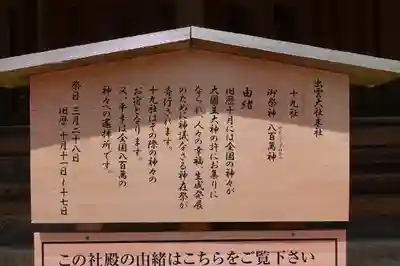 出雲大社末社
十九社
御祭神 八百萬神
やおよろずのかみ
由緒
旧暦十月には全国の神々が
大國主大神の許にお集りに
なられ、人々の幸福、生成発展
のために神議なさる神在祭が
斎行されます。
十九社はその際の神々の
お宿となります。
又、平素は全国八百萬の
神々への遥拝所です。
祭日 三月二十八日
旧暦 十月十一日~十七日
この社殿の由緒はこちらをご覧下さい